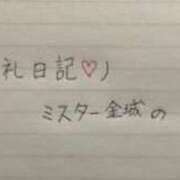 礼日記♡)
ミスター金城の